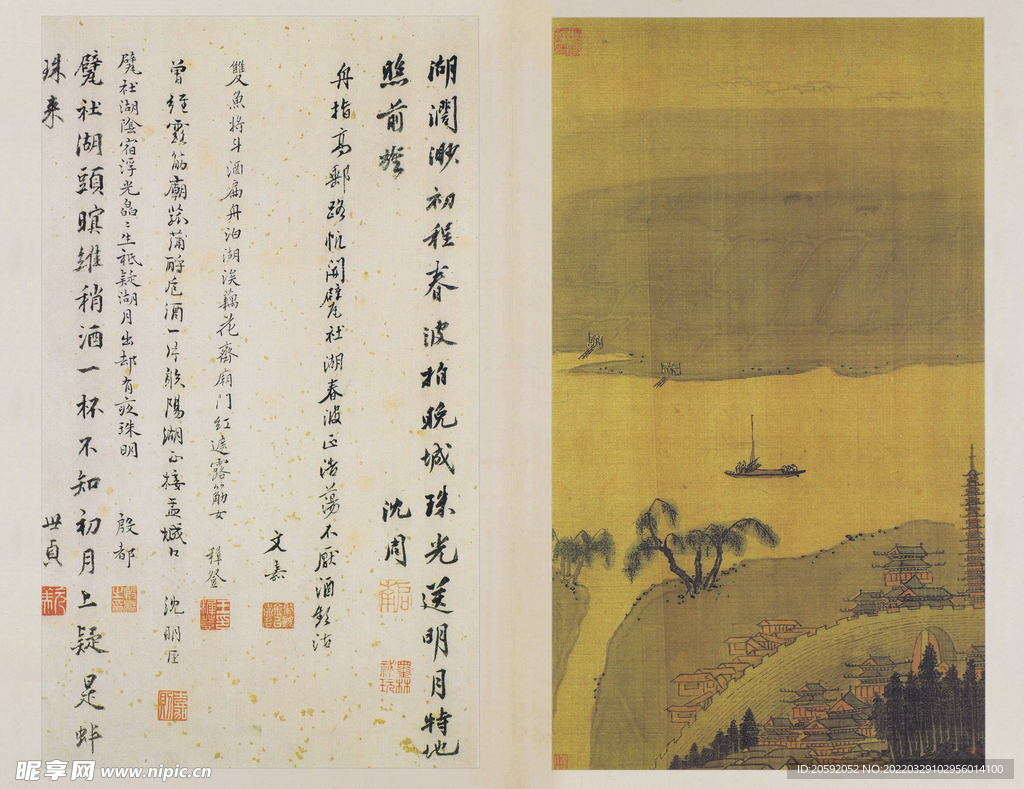 湖濶渺初程春波柏晚城珠光送明月特地
照前楹
沈周
舟指高郵路忼聞甓社湖春波正浩蕩不厭酒頻沽
文嘉
雙魚將斗酒扁舟泊湖涘藕花齋廟门紅遮露筋女
穉登
曾經露筋廟菰蒲酹卮酒一片散陽湖正接盂城口
沈明臣
甓社湖陰宿浮光晶〻生祗疑湖月出却有夜珠明
殷都
甓社湖頭暝維稍酒一杯不知初月上疑是蚌
珠来
世貞
昵享网 www.nipic.cn
ID:20592052 NO:20220329102956014100